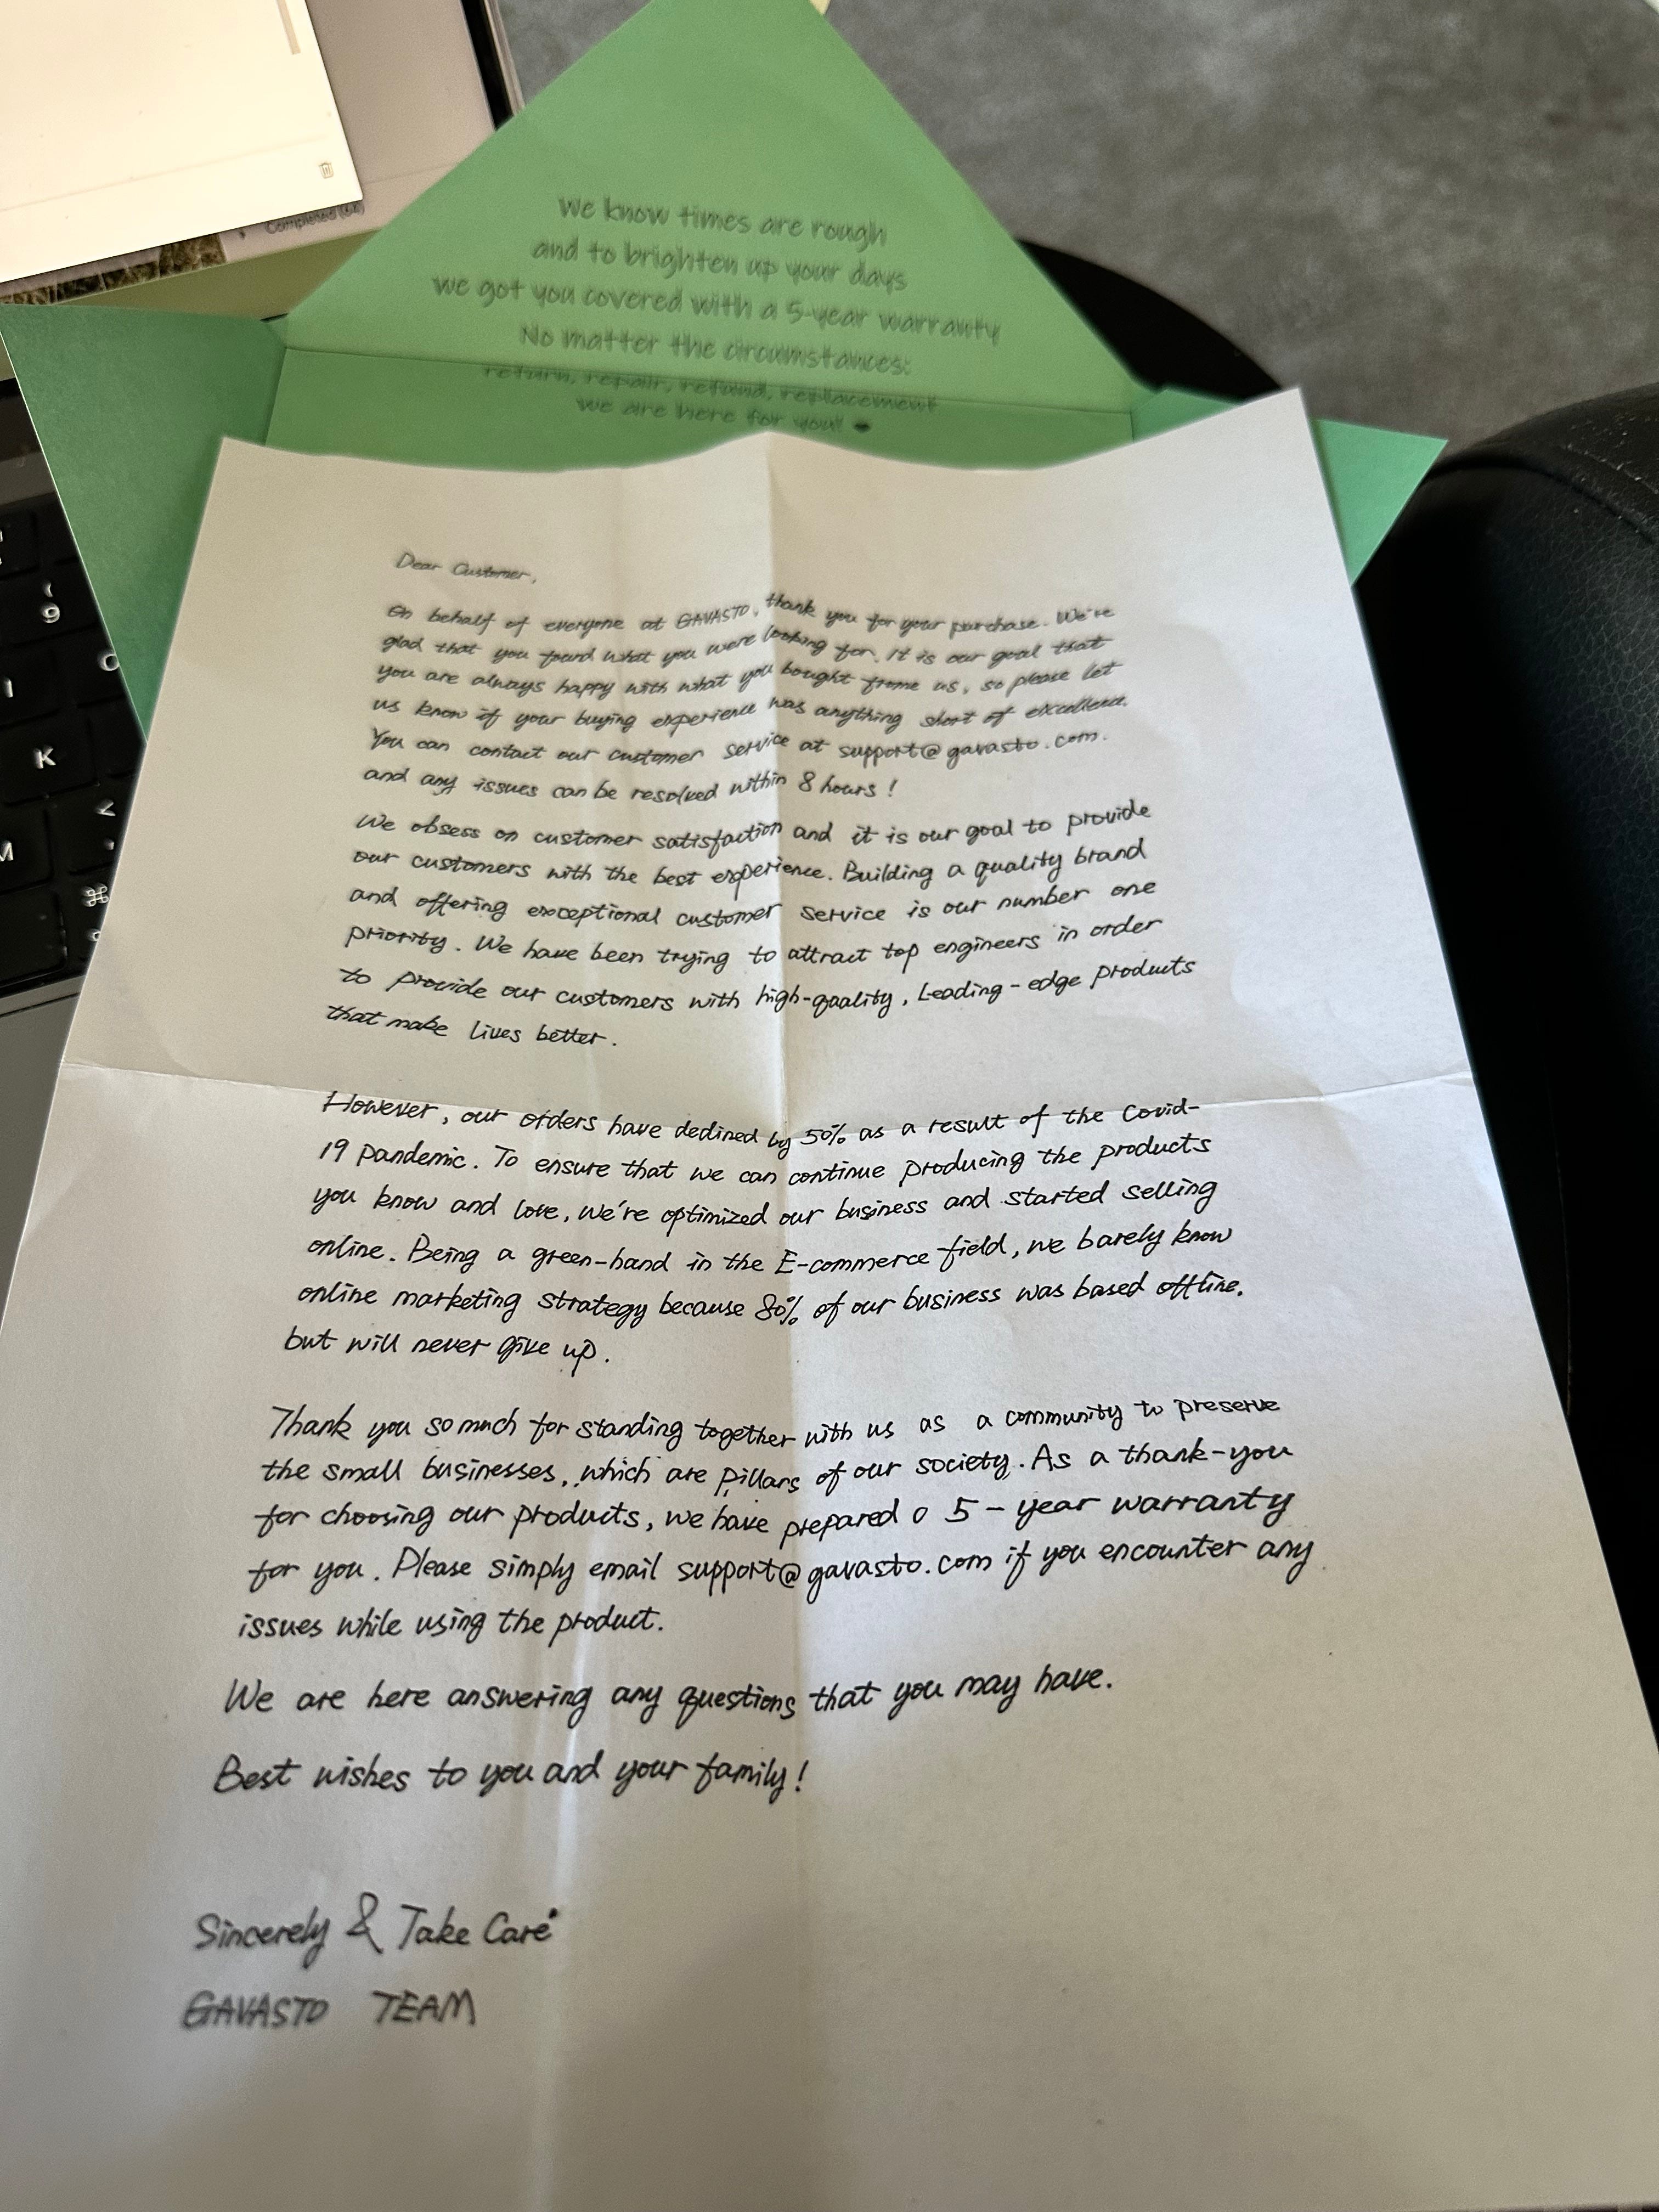 Completed (62)
We know times are rough
and to brighten up your days
we got you covered with a 5-year warranty
No matter the circumstances:
return, repair, refund, replacement
we are here for you!
Dear Customer,
On behalf of everyone at GAVASTO, thank you for your purchase. We're
glad that you found what you were looking for. It is our goal that
you are always happy with what you bought frome us, so please let
us know if your buying experience was anything short of excellence.
You can contact our customer service at support@gavasto.com.
and any issues can be resolved within 8 hours!
We obsess on customer satisfaction and it is our goal to provide
our customers with the best experience. Building a quality brand
and offering exceptional customer service is our number one
priority. We have been trying to attract top engineers in order
to provide our customers with high-quality, Leading-edge products
that make lives better.
However, our orders have declined by 50% as a result of the Covid-
19 pandemic. To ensure that we can continue producing the products
you know and love, we're optimized our business and started selling
online. Being a green-hand in the E-commerce field, we barely know
online marketing strategy because 80% of our business was based offline.
but will never give up.
Thank you so much for standing together with us as a community to preserve
the small businesses, which are pillars of our society. As a thank-you
for choosing our products, we have prepared a 5-year warranty
for you. Please simply email support@gavasto.com if you encounter any
issues while using the product.
We are here answering any questions that you may have.
Best wishes to you and your family!
Sincerely & Take Care
GAVASTO TEAM
(
9
K
<
,
M
⌘